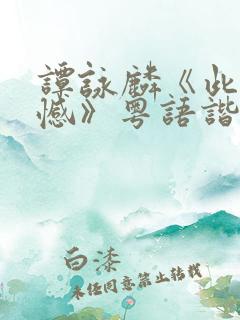 譚詠麟《此
憾》粵語諧
白漆
未经同意禁止转载